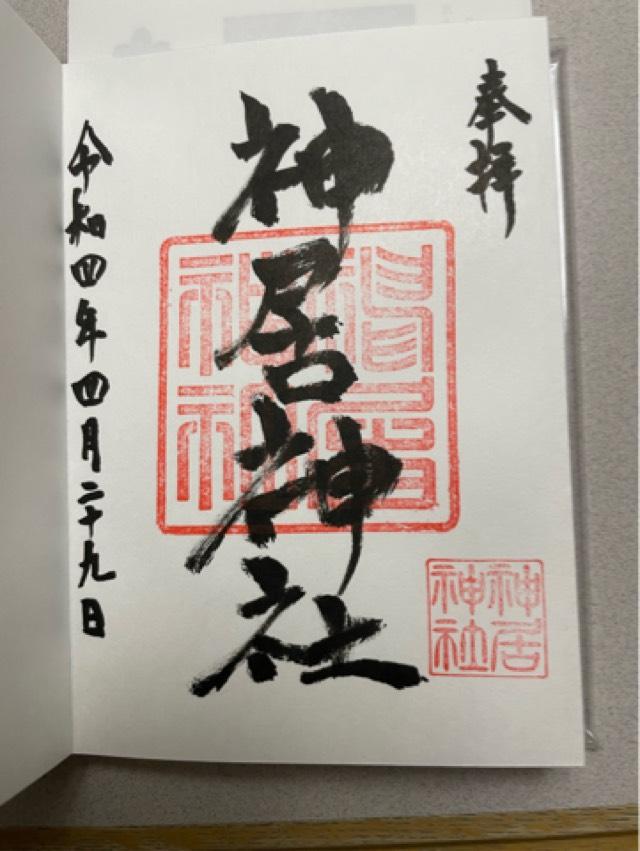 奉拝
神居神社
神居神社
令和四年四月二十九日